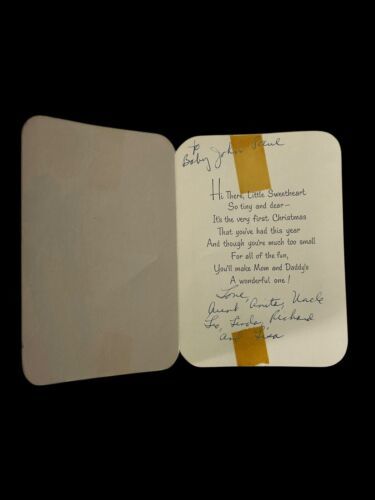 To
Baby John Paul
Hi There, Little Sweetheart
So tiny and dear—
It's the very first Christmas
That you've had this year
And though you're much too small
For all of the fun,
You'll make Mom and Daddy's
A wonderful one!
Love,
Aunt Anita, Uncle
Linda, Richard
and Lisa